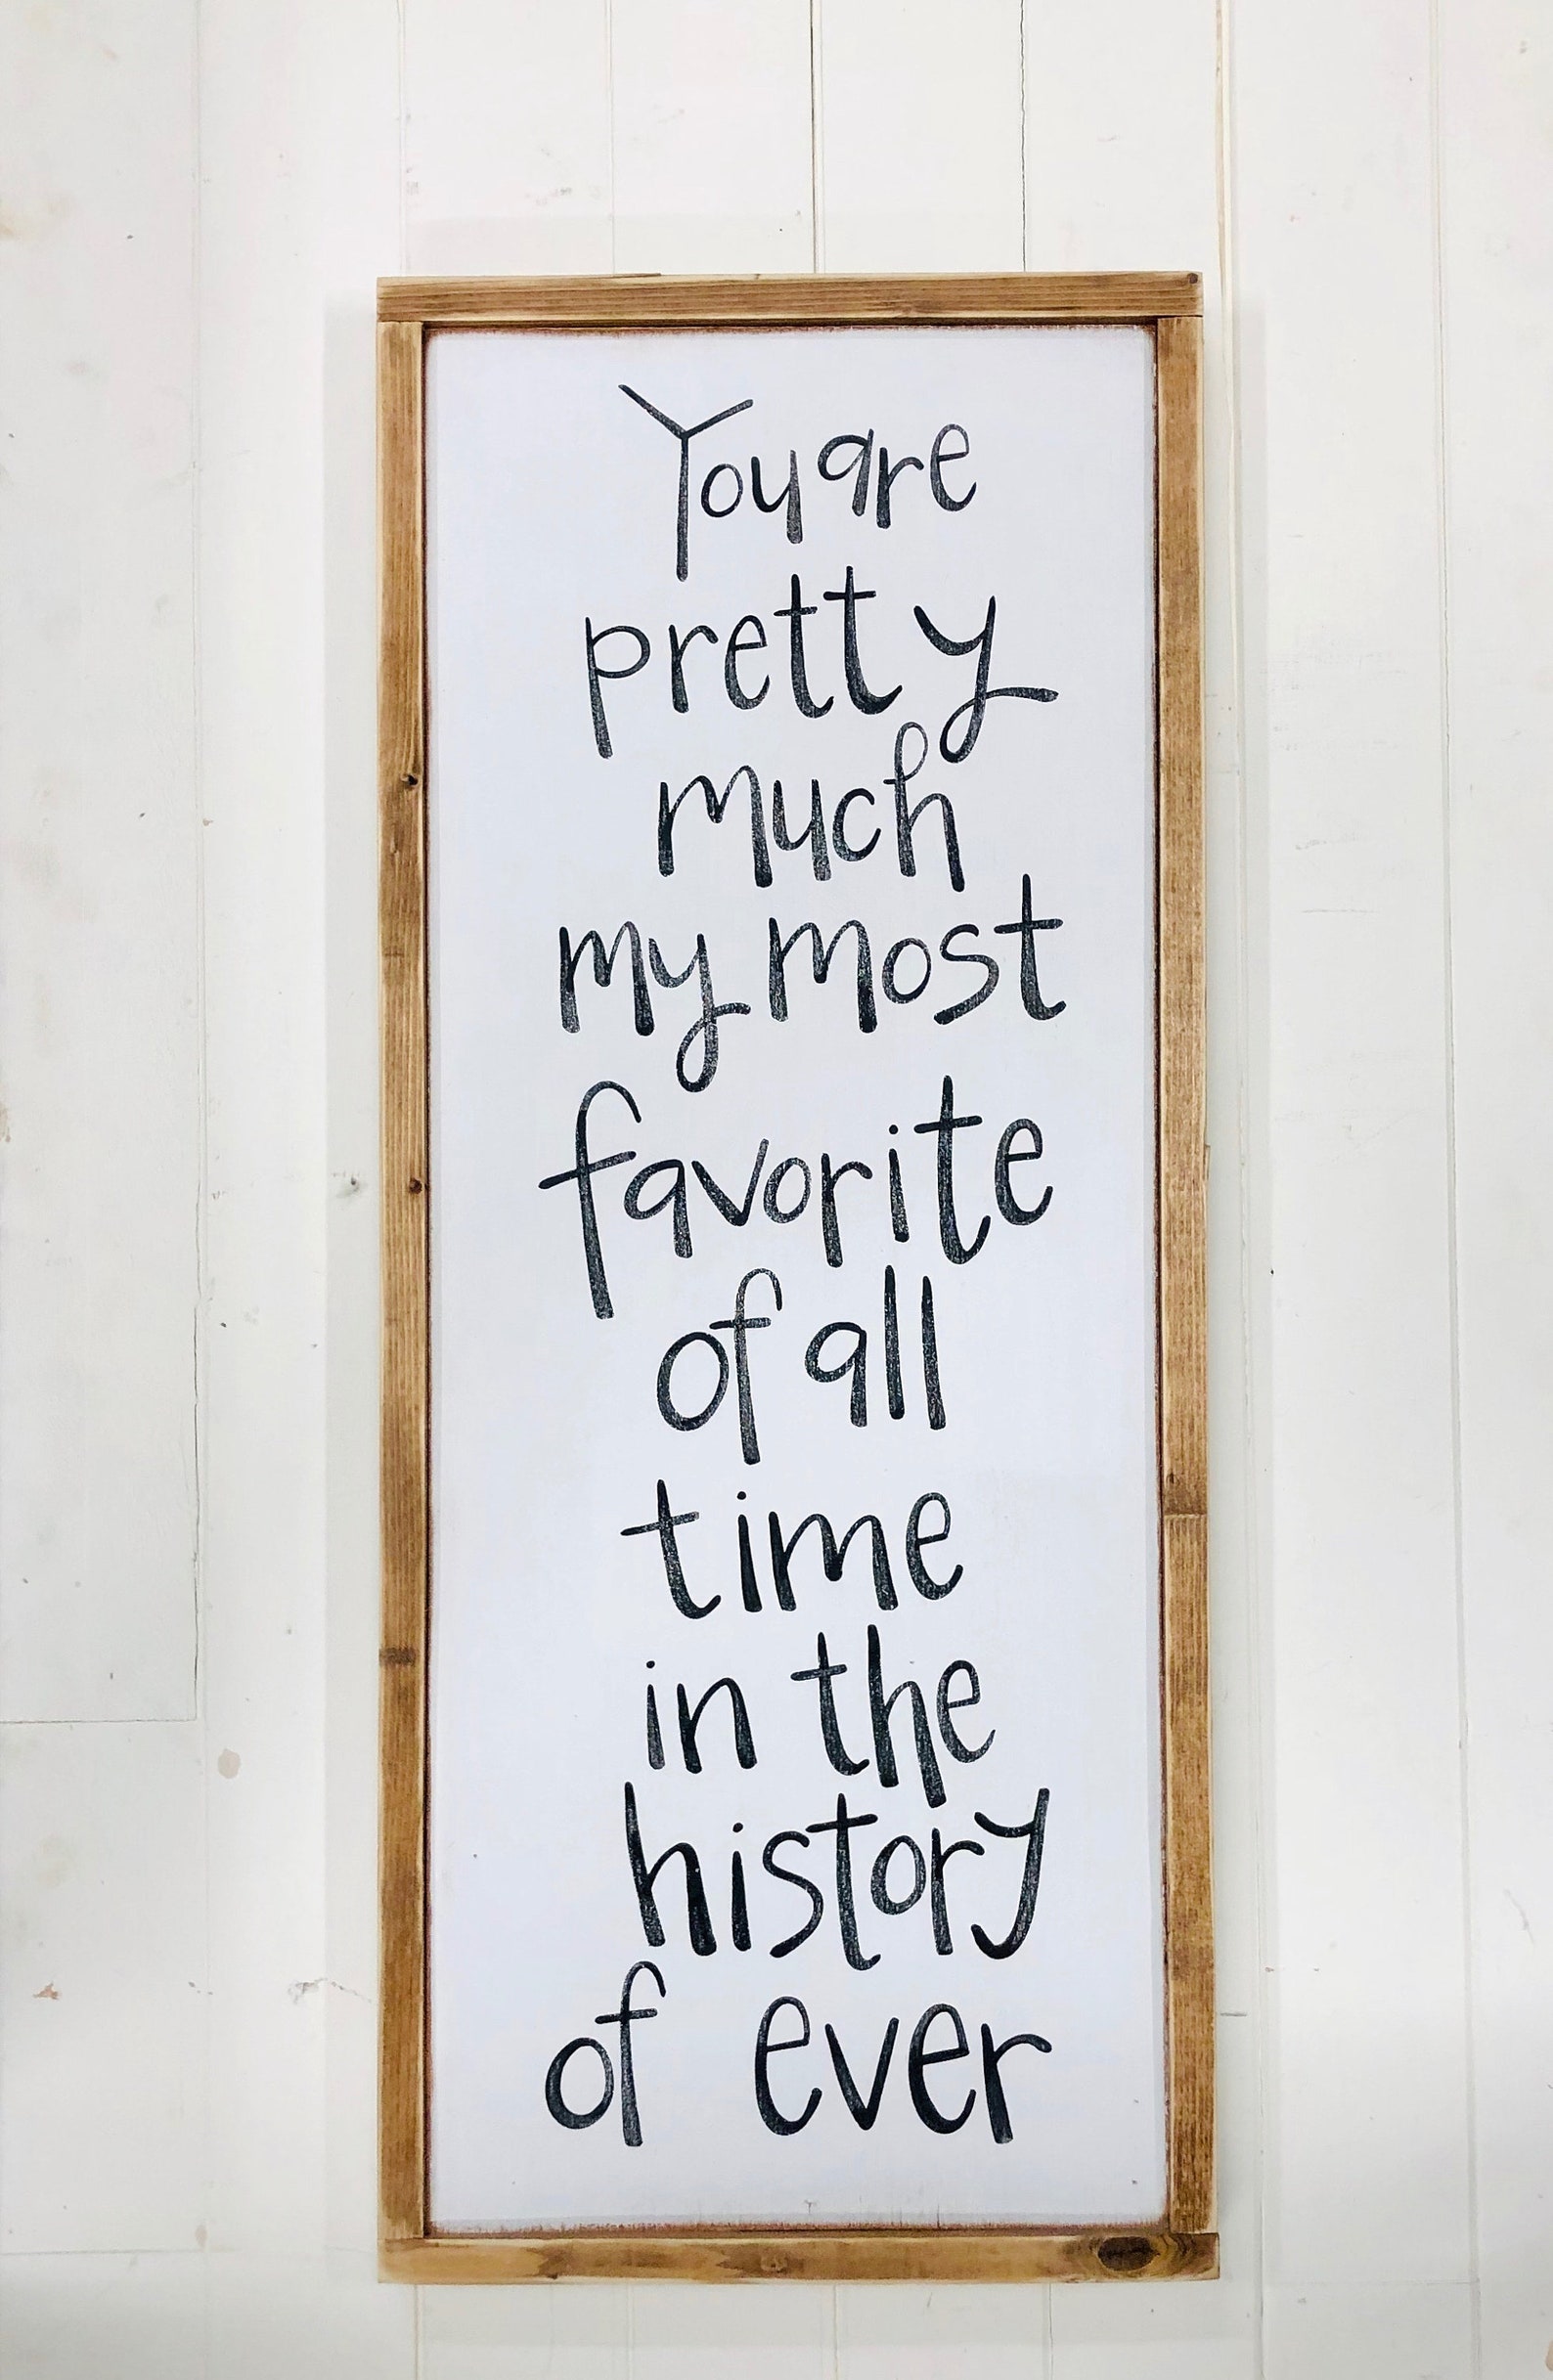 You are
pretty
much
my most
favorite
of all
time
in the
history
of ever